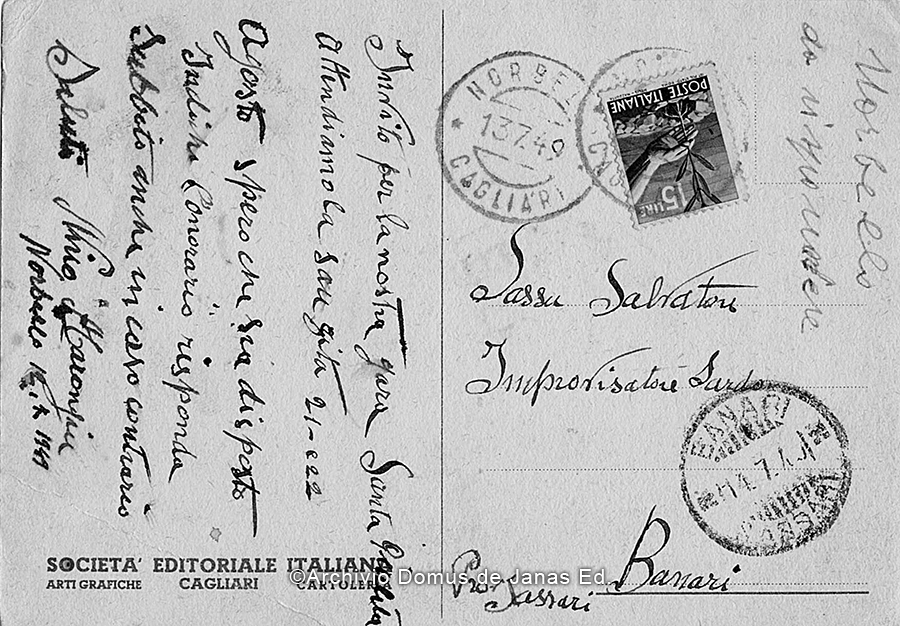 Invito per la nostra gara Santa
Attendiamo la sau gita 21-e22
Agosto spero che sia disposto
Indichi l'onorario risponda
Subbito anche in caso contrario
Saluti Nino Marongiu
Norbello 12.7.1949
SOCIETA' EDITORIALE ITALIANA
ARTI GRAFICHE CAGLIARI CARTOLERIA
NORBELLO
13.7.49
* CAGLIARI
POSTE ITALIANE
15 LIRE
Norbello
da rispondere
Sassu Salvatore
Improvisatore Sardo
Banari
Prov Sassari
BANARI
14.7.4
SASSARI
©Archivio Domus de Janas Ed.